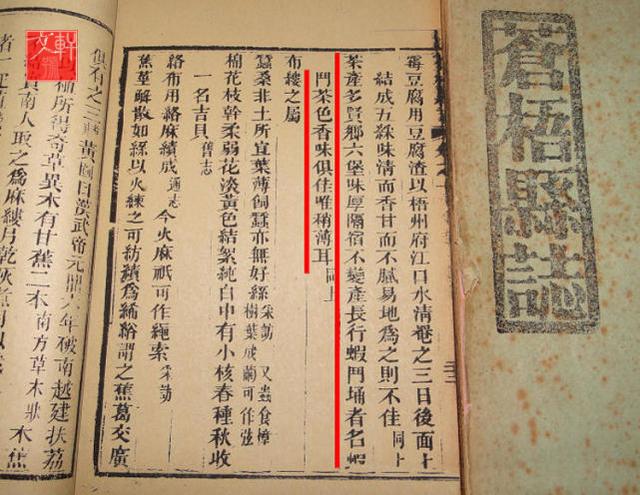 蒼梧縣誌
霉豆腐用豆腐渣以梧州府江口水清菴之三日後面上
結成五綵味清而香甘而不膩易地為之則不佳同上
茶產多賢鄉六堡味厚隔宿不變產長行蝦鬥埇者名蝦
鬥茶色香味俱佳唯稍薄耳同上
布縷之屬
蠶桑非土所宜葉薄飼蠶亦無好絲采訪又蟲食樟樹葉成繭可作弦
棉花枝幹柔弱花淡黃色結絮純白中有小核春種秋收
一名吉貝舊志
絡布用絡麻績成通志今火麻祇可作繩索采訪
蕉葉解散如絲以火練之可紡績為絺綌謂之蕉葛交廣
俱有之三輔黃圖曰漢武帝元鼎六年破南越建扶荔
所得奇草異木有甘蕉二本南方草木狀木蕉
南人取之為麻縷
文軒